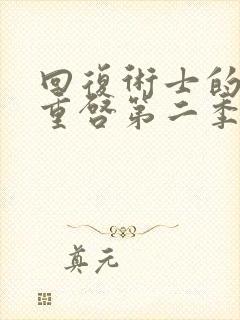 回復術士的
重啓第二季
真元